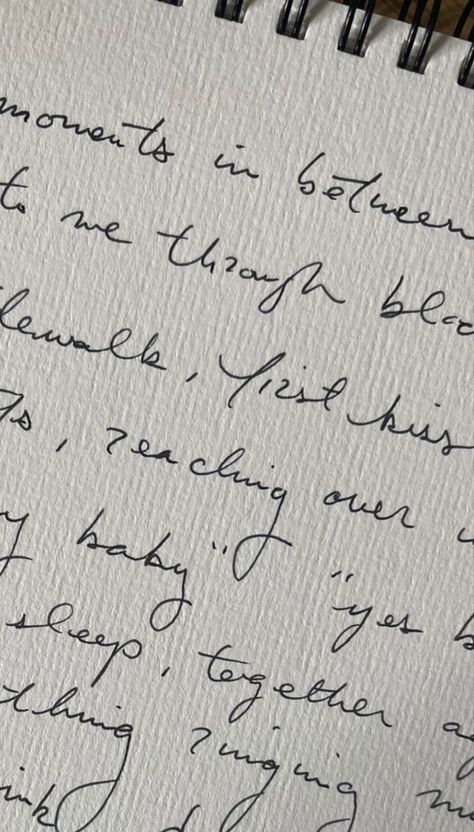 moments in between
to me through bloo
lewalk, first kiss
7s, reaching over
y baby" "yes b
sleep, together ag
thing ringing m
ink